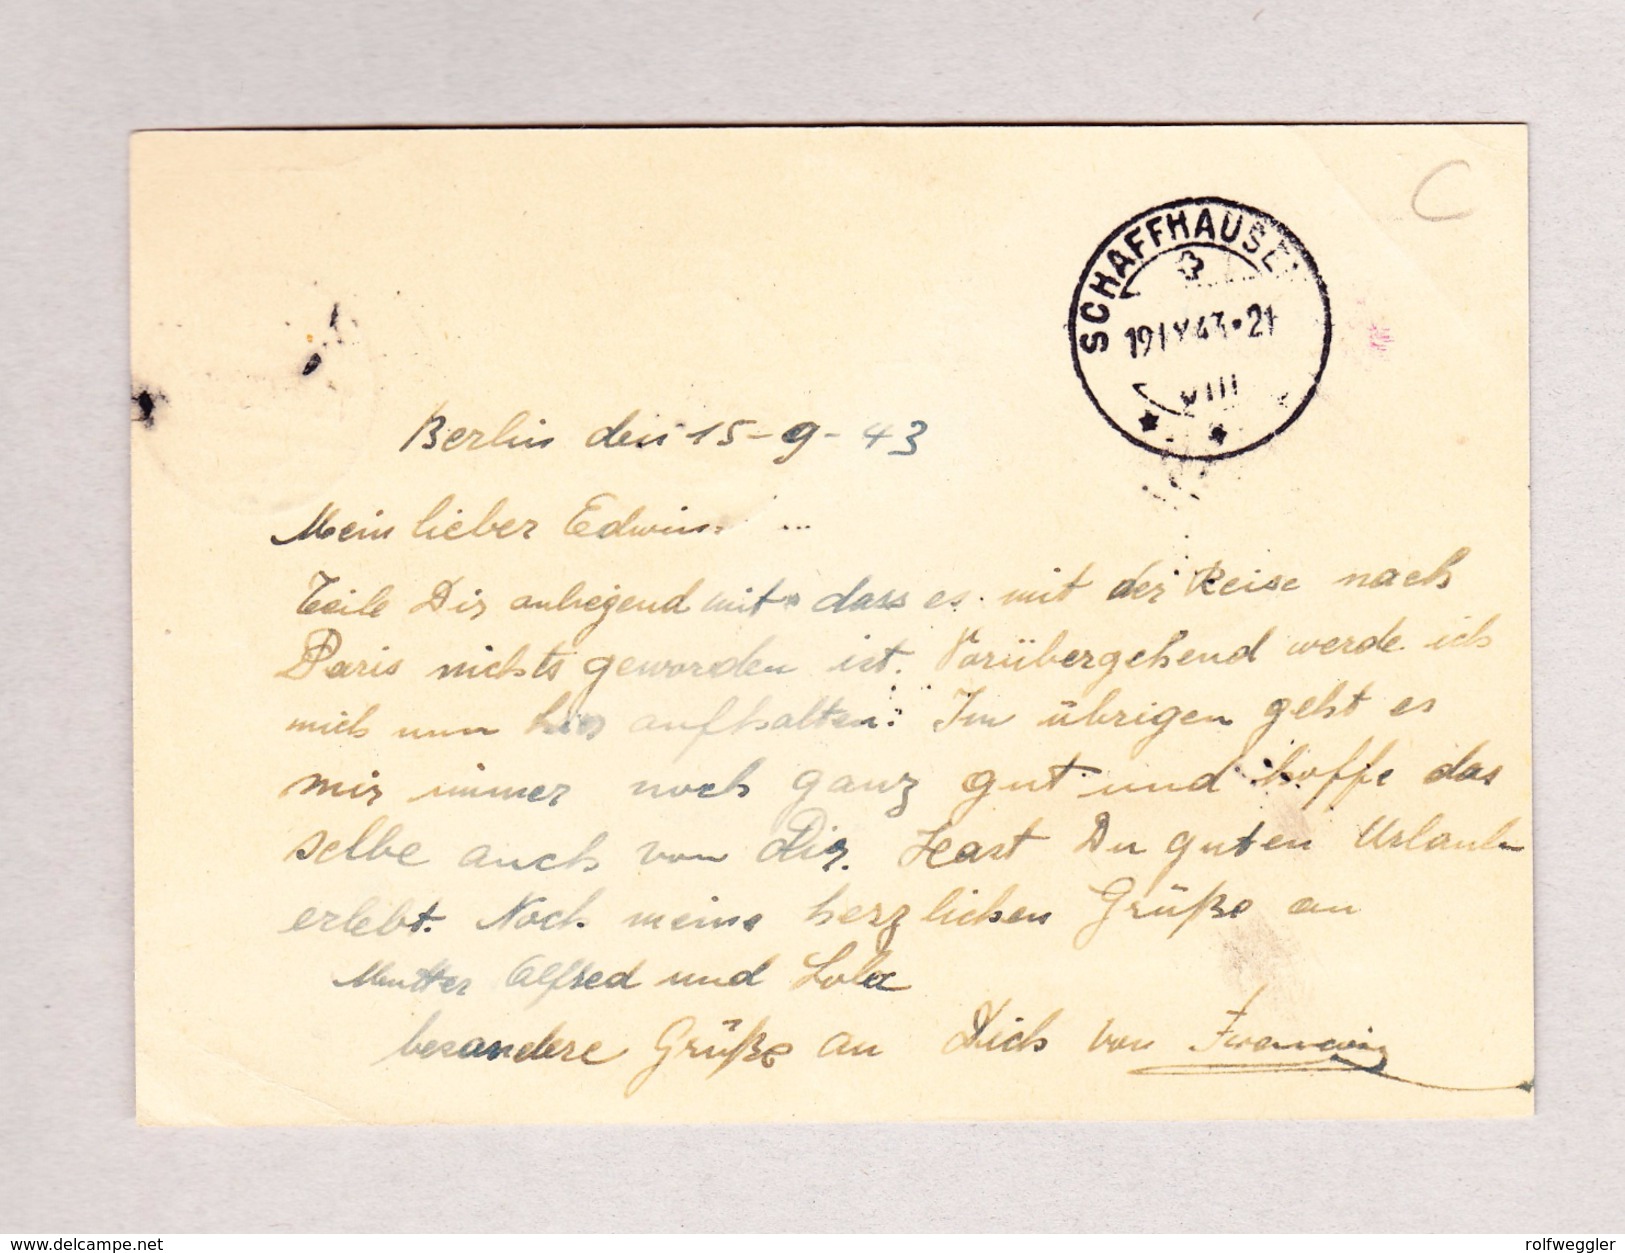 C
SCHAFFHAUSEN
19 IX 43 • 21
VIII
Berlin den 15-9-43
Mein lieber Edwin ...
Teile Dir anliegend mit dass es mit der Reise nach
Paris nichts geworden ist. Vorübergehend werde ich
mich nun hier aufhalten. Im übrigen geht es
mir immer noch ganz gut und hoffe das
selbe auch von Dir. Hast Du guten Urlaub
erlebt. Noch meine herzlichen Grüße an
Mutter Alfred und Lola
besondere Grüße an Dich von
delcampe.net
rolfweggler